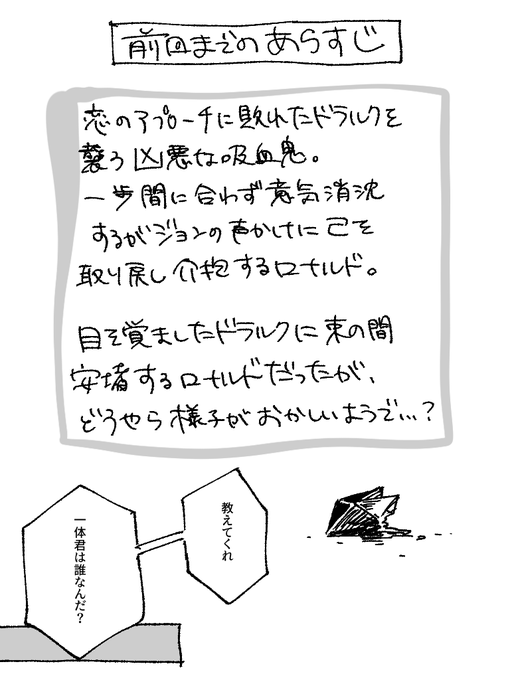 前回までのあらすじ
恋のアプローチに敗れたドラルクを
襲う凶悪な吸血鬼。
一歩間に合わず意気消沈
するがジョンの声かけに己を
取り戻し介抱するロナルド。
目を覚ましたドラルクに束の間
安堵するロナルドだったが、
どうやら様子がおかしいようで…?
教えてくれ
一体君は誰なんだ?